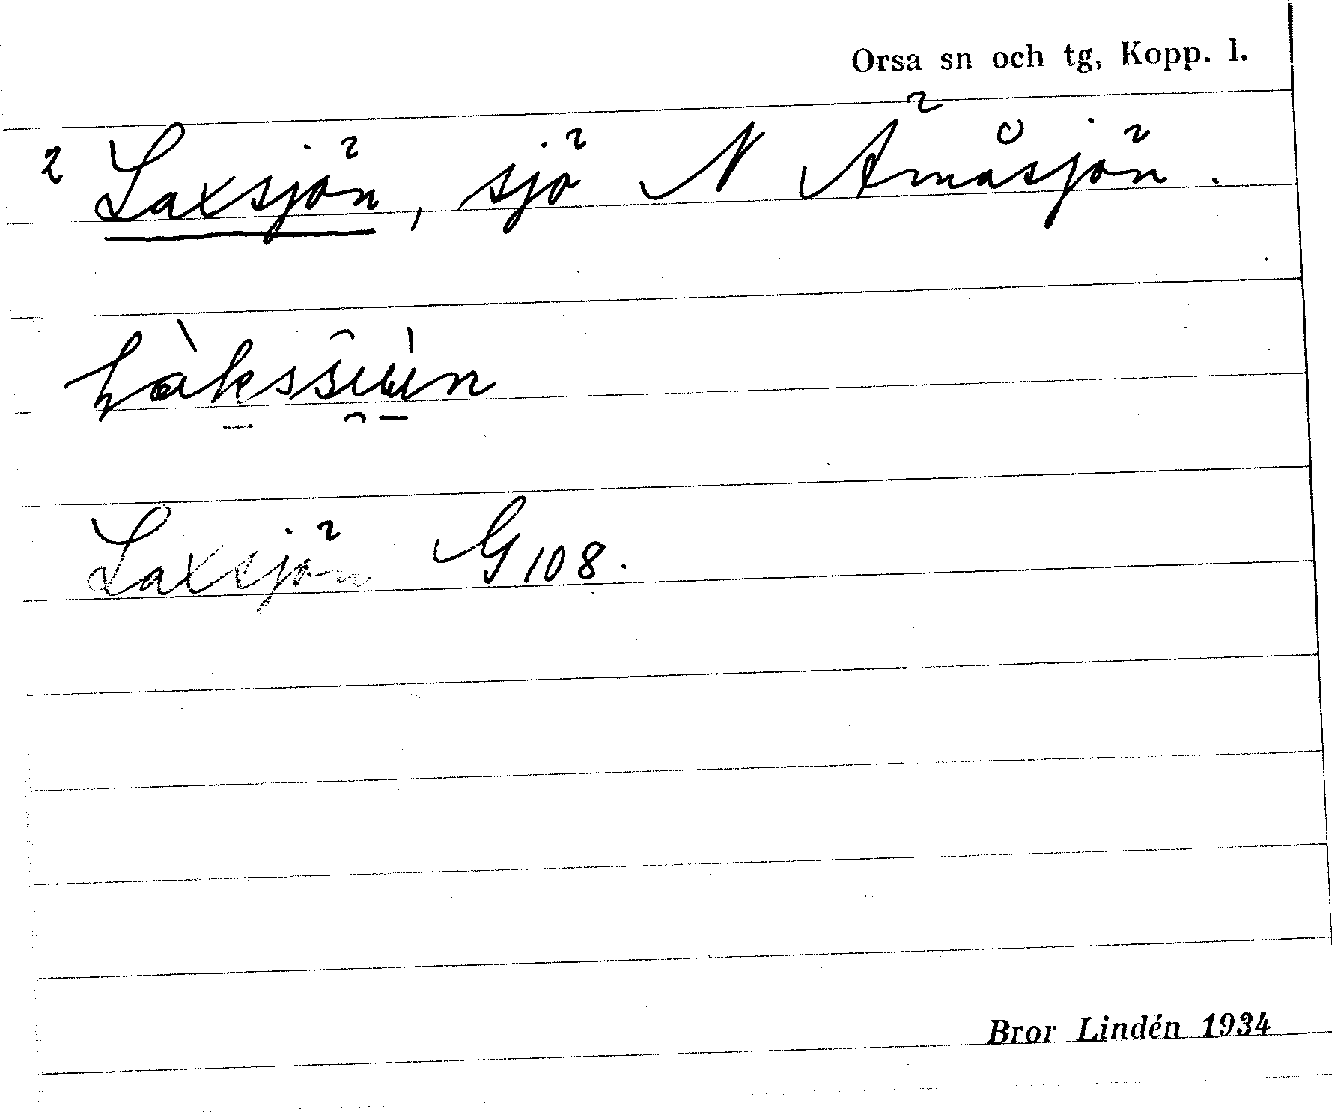 Orsa sn och tg, Kopp. l.
2 Laxsjön, sjö N Ämåsjön.
Laxsjön G108.
Bror Lindén 1934